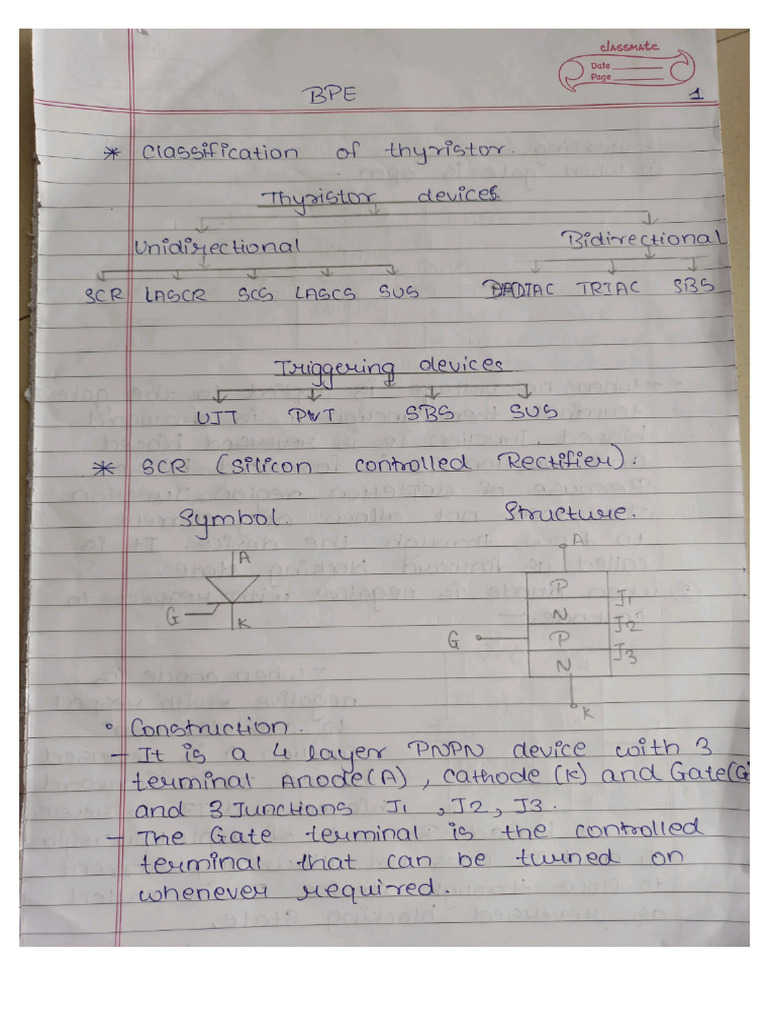 classmate
Date
Page
BPE
1
* Classification of thyristor.
Thyristor devices
Unidirectional Bidirectional
SCR LASCR SCS LASCS SUS DIAC TRIAC SBS
Triggering devices
UJT PUT SBS SUS
* SCR (Silicon controlled Rectifier).
Symbol. Structure.
A
G
K
A
P
N
P
N
J1
J2
J3
G
K
• Construction.
- It is a 4 layer PNPN device with 3
terminal Anode(A), cathode (K) and Gate(G)
and 3 Junctions J1, J2, J3.
- The Gate terminal is the controlled
terminal that can be turned on
whenever required.